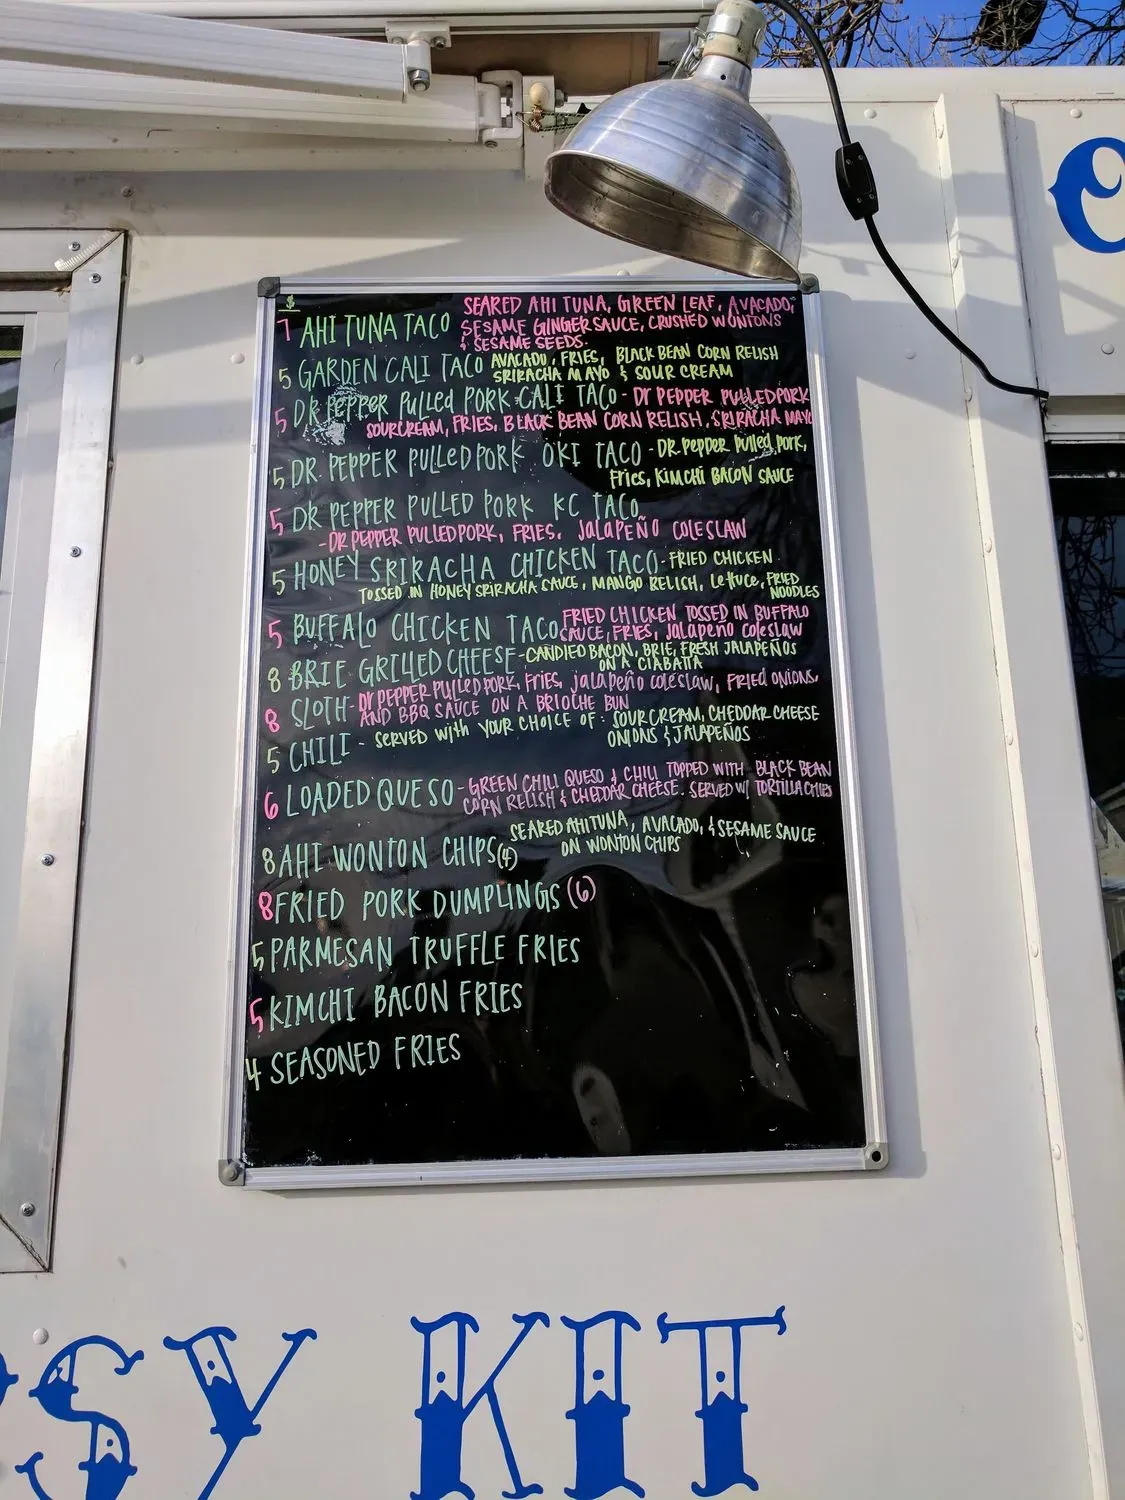 $
7 AHI TUNA TACO SEARED AHI TUNA, GREEN LEAF, AVACADO,
SESAME GINGER SAUCE, CRUSHED WONTONS
& SESAME SEEDS.
5 GARDEN CALI TACO AVACADO, FRIES, BLACK BEAN CORN RELISH
SRIRACHA MAYO & SOUR CREAM
5 DR PEPPER PULLED PORK CALI TACO - DR PEPPER PULLED PORK
SOURCREAM, FRIES, BLACK BEAN CORN RELISH, SRIRACHA MAYO
5 DR. PEPPER PULLED PORK OKI TACO - DR. PEPPER PULLED PORK,
FRIES, KIMCHI BACON SAUCE
5 DR PEPPER PULLED PORK KC TACO
- DR PEPPER PULLED PORK, FRIES, JALAPEÑO COLESLAW
5 HONEY SRIRACHA CHICKEN TACO - FRIED CHICKEN
TOSSED IN HONEY SRIRACHA SAUCE, MANGO RELISH, LETTUCE, FRIED
NOODLES
5 BUFFALO CHICKEN TACO FRIED CHICKEN TOSSED IN BUFFALO
SAUCE, FRIES, JALAPEÑO COLESLAW
8 BRIE GRILLED CHEESE - CANDIED BACON, BRIE, FRESH JALAPEÑOS
ON A CIABATTA
8 SLOTH - DR PEPPER PULLED PORK, FRIES, JALAPEÑO COLESLAW, FRIED ONIONS,
AND BBQ SAUCE ON A BRIOCHE BUN
5 CHILI - SERVED WITH YOUR CHOICE OF: SOUR CREAM, CHEDDAR CHEESE
ONIONS & JALAPEÑOS
6 LOADED QUESO - GREEN CHILI QUESO & CHILI TOPPED WITH BLACK BEAN
CORN RELISH & CHEDDAR CHEESE. SERVED W/ TORTILLA CHIPS
8 AHI WONTON CHIPS (4) SEARED AHI TUNA, AVACADO, & SESAME SAUCE
ON WONTON CHIPS
8 FRIED PORK DUMPLINGS (6)
5 PARMESAN TRUFFLE FRIES
5 KIMCHI BACON FRIES
4 SEASONED FRIES
SY KIT